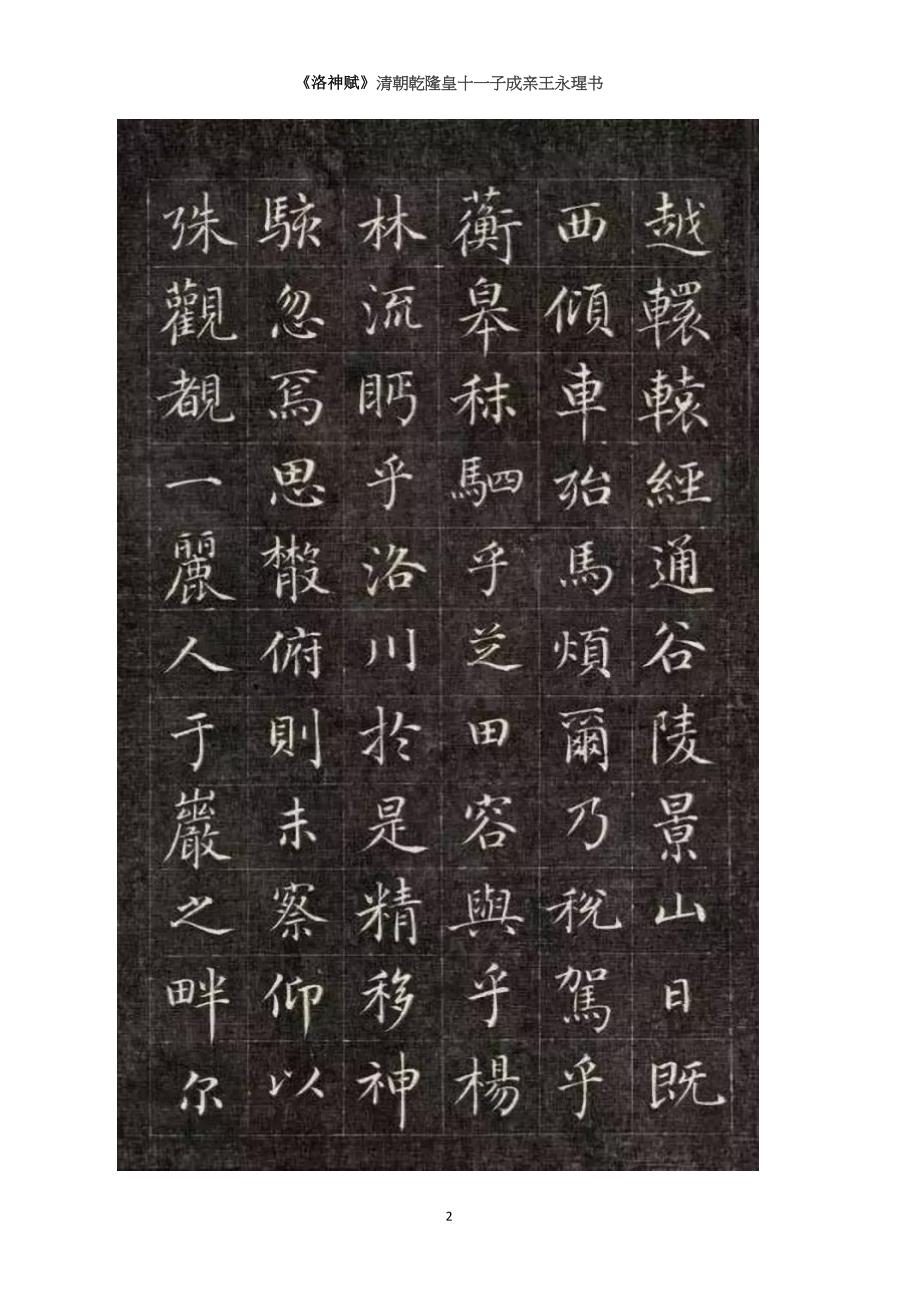 《洛神赋》清朝乾隆皇十一子成亲王永瑆书
越轘轅經通谷陵景山日既
西傾車殆馬煩爾乃稅駕乎
蘅皋秣駟乎芝田容與乎楊
林流眄乎洛川於是精移神
駭忽焉思散俯則未察仰以
殊觀覩一麗人于巖之畔尔
2